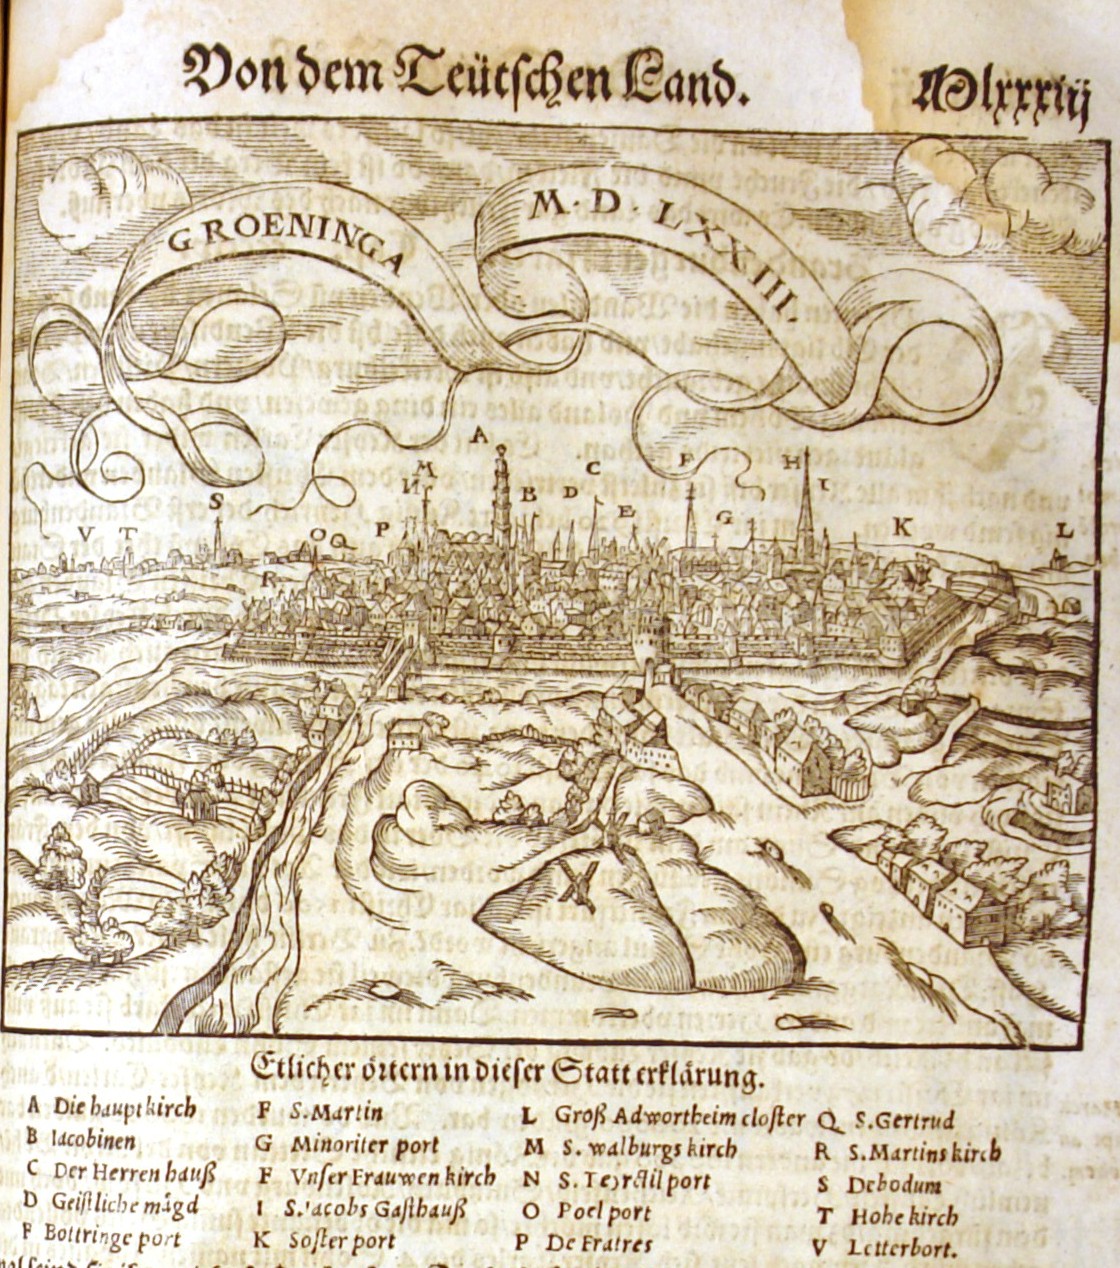 Von dem Teütschen Land.
Mlxxxiij
GROENINGA
M·D LXXIII
A
M
C
F
H
N
B
D
I
S
E
G
K
L
V T
O
Q
P
R
Etlicher örtern in dieser Statt erklärung.
A Die haupt kirch
B Iacobinen
C Der Herren hauß
D Geistliche mägd
F Bottringe port
F S. Martin
G Minoriter port
F Vnser Frauwen kirch
I S. Iacobs Gasthauß
K Soster port
L Groß Adwortheim closter
M S. walburgs kirch
N S. port
O Poel port
P De Fratres
Q S. Gertrud
R S. Martins kirch
S Debodum
T Hohe kirch
V Letterbort.